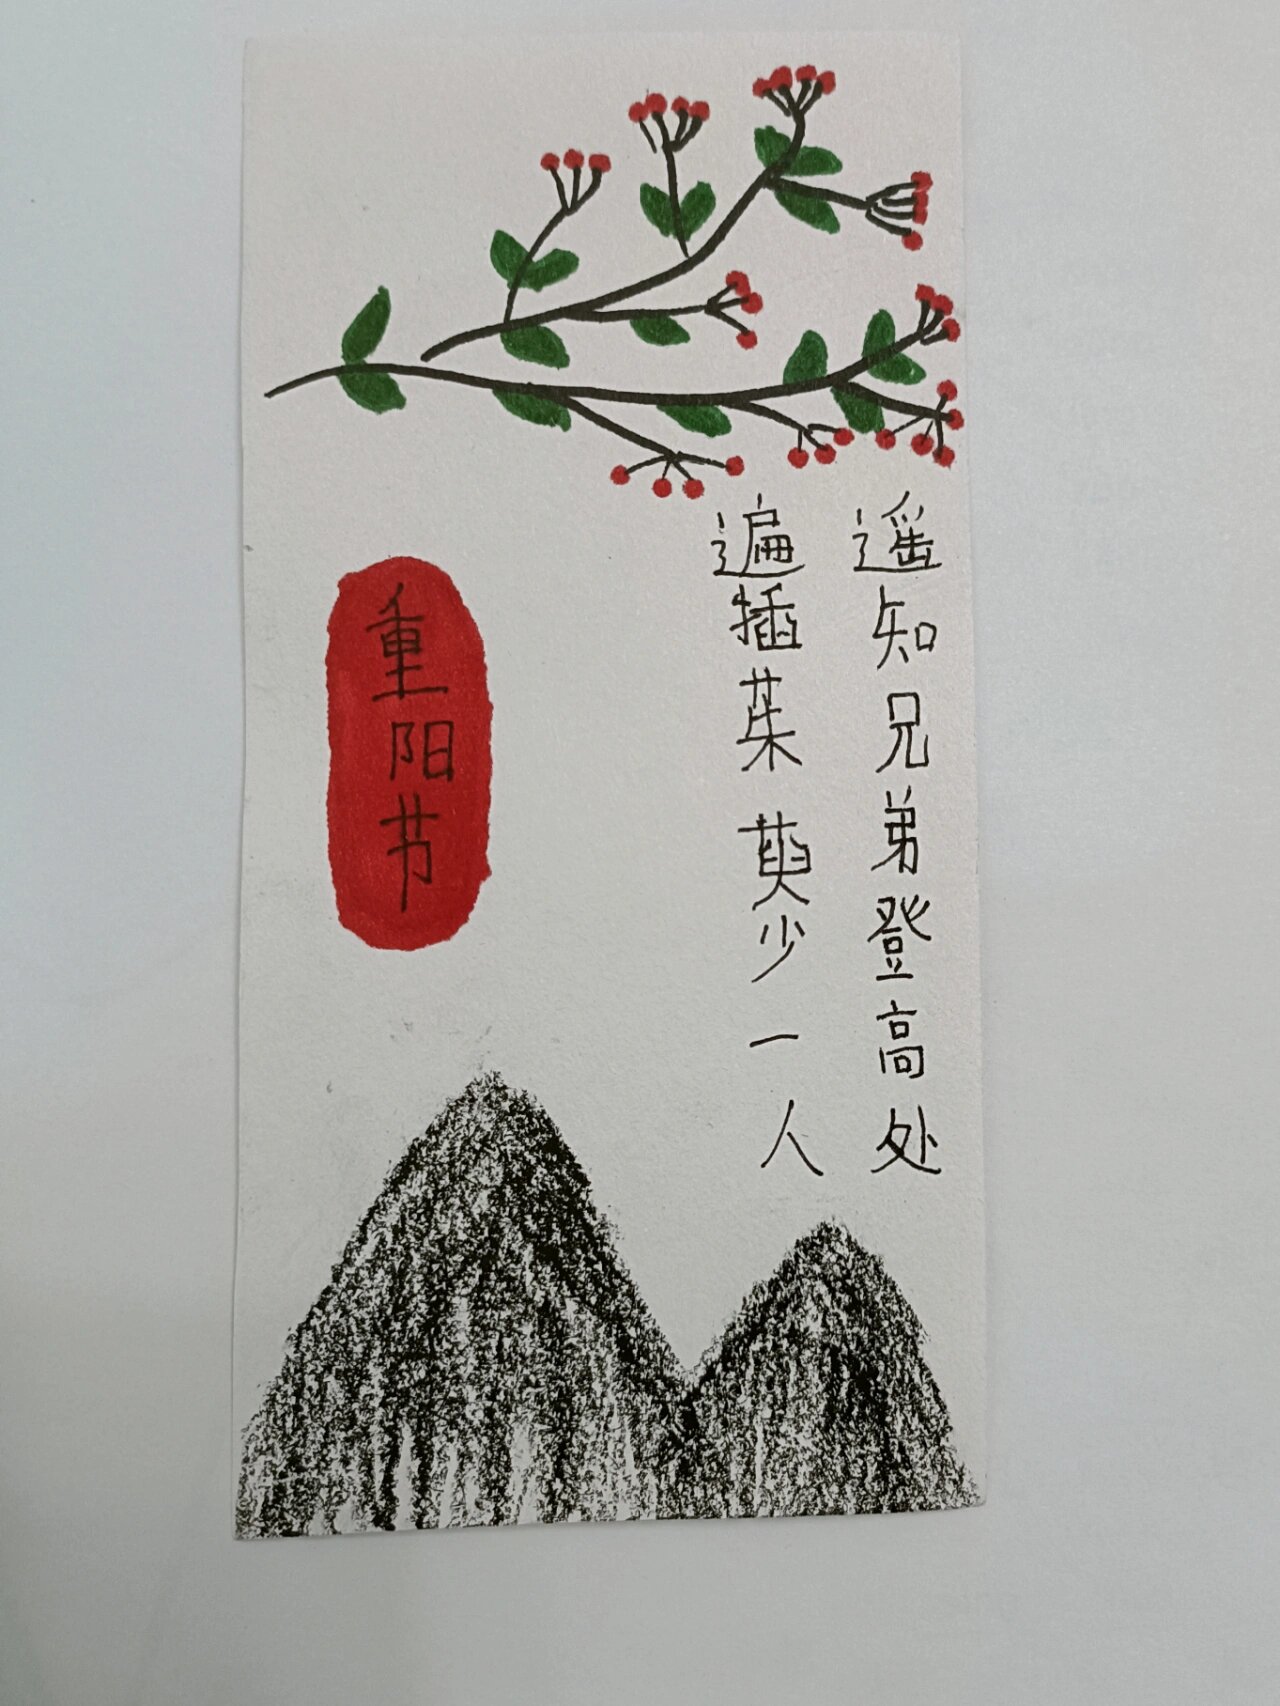 遥知兄弟登高处
遍插茱萸少一人
重阳节